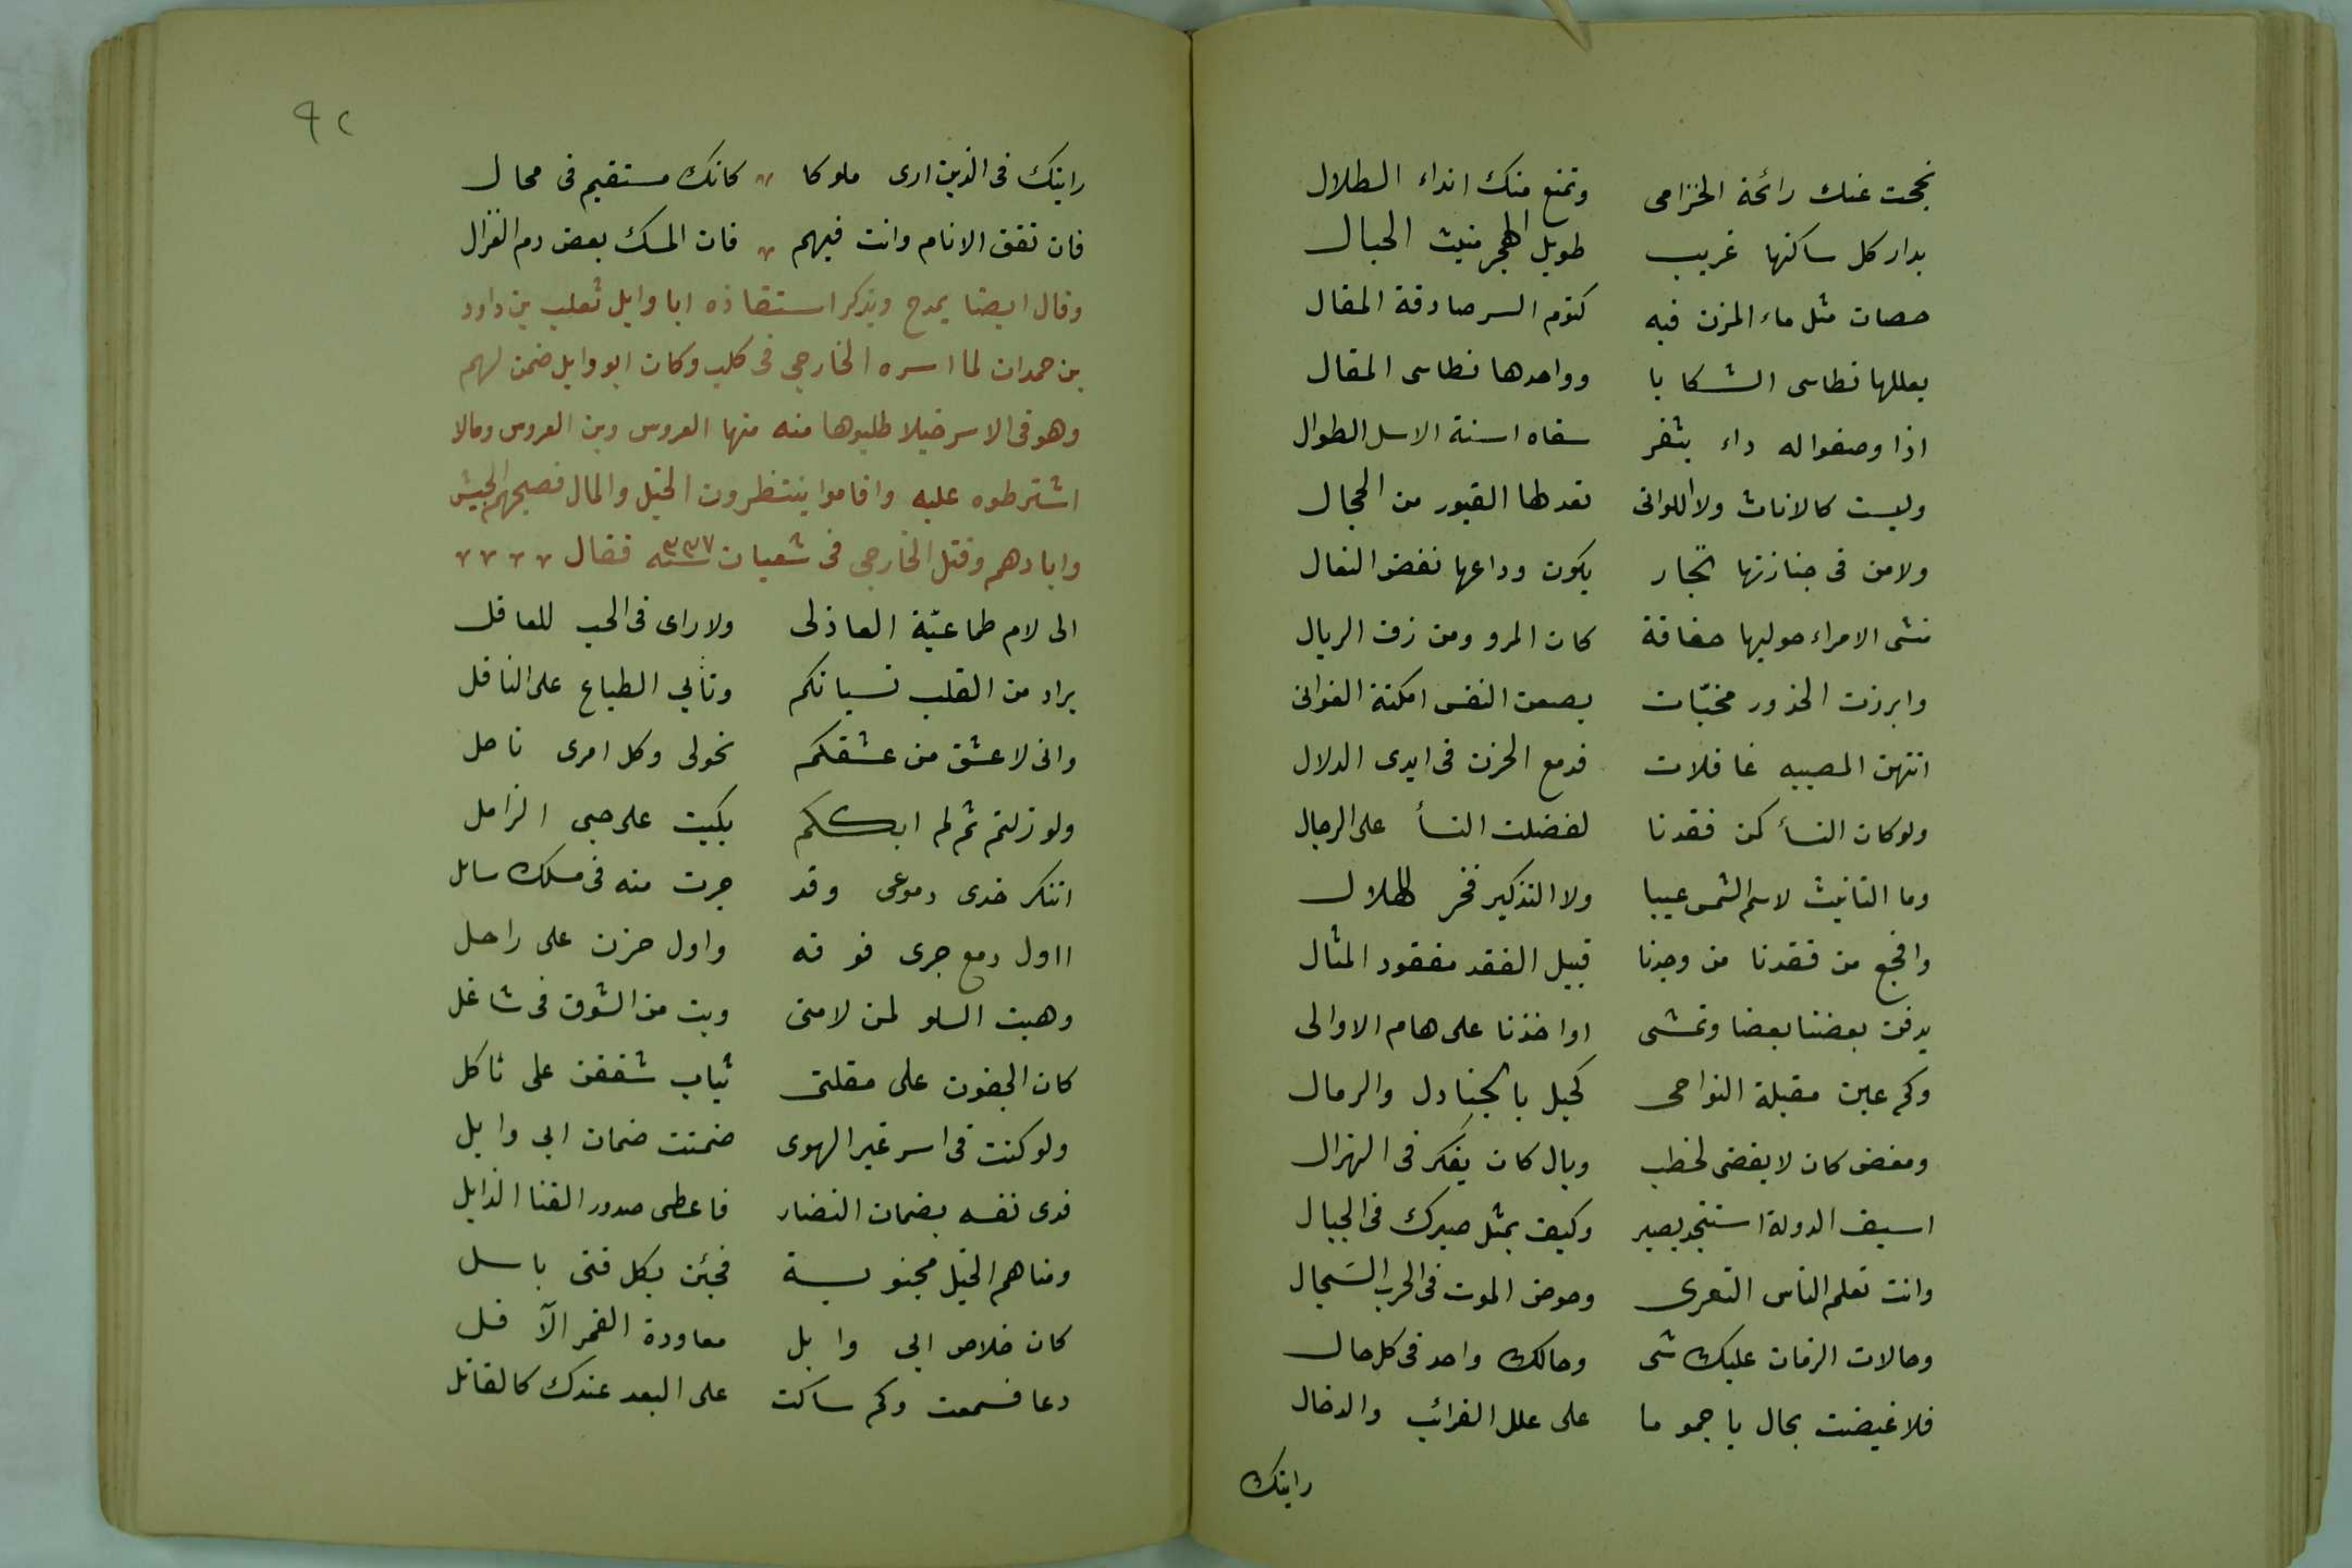 نججت عنك رائحة الخزامى وتمنع منك انداء الطلال
بدار كل ساكنها غريب طويل الهجر منبث الحبال
حصان مثل ماء المزن فيه كتوم السر صادقة المقال
يعللها نطاسى الشكايا وواحدها نطاسى المقال
اذا وصفوا له داء بثغر سقاه اسنة الاسل الطوال
وليست كالاناث ولا اللواتى تعد لها القبور من الحجال
ولا من فى جنازتها تجار يكون وداعها نفض النعال
مشى الامراء حوليها حفاة كان المرو ومن زف الريال
وابرزت الخدور مخبّات يضعن النفس امكنة الغوالى
اتتهن المصيبه غافلات فدمع الحزن فى ايدى الدلال
ولو كان النسأ كمن فقدنا لفضلت النسأ على الرجال
وما التانيث لاسم الشمس عيبا ولا التذكير فخر للهلال
وافجع من فقدنا من وجدنا قبيل الفقد مفقود المثال
يدفن بعضنا بعضا وتمشى اواخذنا على هام الاوالى
وكم عين مقبلة النواحى كحيل بالجنادل والرمال
ومغض كان لا يغضى لخطب وبال كان يفكر فى الهزال
اسيف الدولة استنجد بصبر وكيف بمثل صبرك فى الجبال
وانت تعلم الناس التعزى وخوض الموت فى الحرب السَجال
وحالات الزمان عليك شى وحالك واحد فى كل حال
فلا غيضت بحال يا جموما على علل الغرائب والدخال
رايتك
٩٢
رايتك فى الذين ارى ملوكا كانك مستقيم فى محال
فان تفق الانام وانت فيهم فان المسك بعض دم الغزال
وقال ايضا يمدح ويذكر استنقاذه ابا وايل تعلب بن داود
بن حمدان لما اسره الخارجى فى كلب وكان ابو وايل ضمن لهم
وهو فى الاسر خيلا طلبوها منه منها العروس وبن العروس ومالا
اشترطوه عليه واقاموا ينتظرون الخيل والمال فصبحهم الجيش
وابادهم وقتل الخارجى فى شعبان سنه ٣٣٧ فقال
الى لام طماعيّة العاذلى ولا راى فى الحب للعاقل
يراد من القلب نسيانكم وتأبي الطباع على الناقل
وانى لاعشق من عشقكم نحولى وكل امرى ناحل
ولو زلتم ثم لم ابككم بكيت على حبى الزامل
اتنكر خدى دموعى وقد جرت منه فى مسلك سابل
ااول دمع جرى فوقه واول حزن على راحل
وهبت السلو لمن لامنى وبت من الشوق فى شاغل
كان الجفون على مقلتى ثياب شققن على ثاكل
ولو كنت فى اسر غير الهوى ضمنت ضمان ابي وايل
فدى نفسه بضمان النضار فاعطى صدور القنا الذابل
ومناهم الخيل مجنوبسة فجئن بكل فتى باسل
كان خلاص ابي وابل معاودة القمر الآفل
دعا فسمعت وكم ساكت على البعد عندك كالقائل